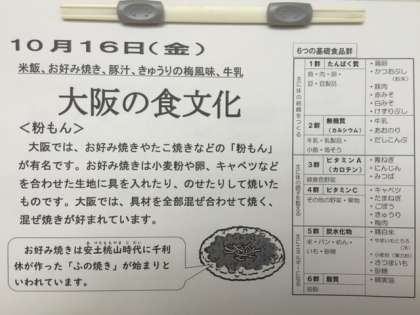 10月16日(金)
米飯、お好み焼き、豚汁、きゅうりの梅風味、牛乳
大阪の食文化
<粉もん>
大阪では、お好み焼きやたこ焼きなどの「粉もん」
が有名です。お好み焼きは小麦粉や卵、キャベツなど
を合わせた生地に具を入れたり、のせたりして焼いた
ものです。大阪では、具材を全部混ぜ合わせて焼く、
混ぜ焼きが好まれています。
お好み焼きは安土桃山時代に千利
休が作った「ふの焼き」が始まりと
いわれています。
6つの基礎食品群
1群 たんぱく質
魚・肉・卵・
豆・豆製品
・鶏卵
・かつおぶし
(粉末)
・豚肉
・赤みそ
・白みそ
・けずりぶし
2群 無機質
(カルシウム)
牛乳・乳製品・
小魚・海そう
・牛乳
・あおのり
・だしこんぶ
3群 ビタミンA
(カロテン)
緑黄色野菜
・青ねぎ
・にんじん
・みつば
4群 ビタミンC
その他の野菜・果物
・キャベツ
・たまねぎ
・ごぼう
・きゅうり
・梅肉
5群 炭水化物
米・パン・めん・
いも・砂糖
・精白米
・やまいもとろろ
・さつまいも
・砂糖
6群 脂質
油脂
・綿実油